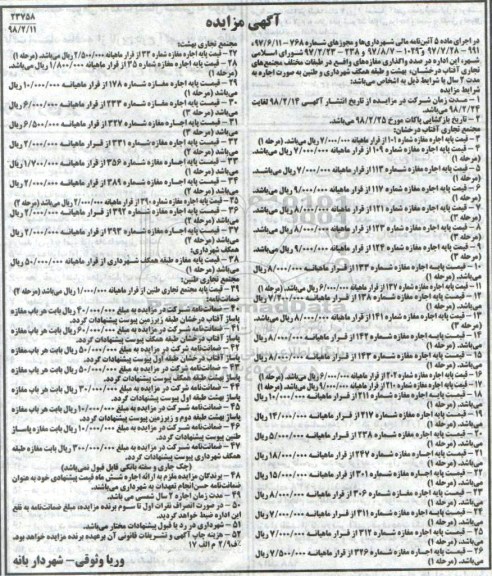 ۲۳۷۵۸
۹۸/۲/۱۱
آگهی مزایده
در اجرای ماده ۵ آئین‌نامه مالی شهرداری‌ها و مجوزهای شماره ۷۶۸ - ۹۷/۶/۱۱،
۹۹۱ - ۹۷/۷/۲۸ و ۱۰۲۶ - ۹۷/۸/۷ و ۲۳۸ - ۹۷/۲/۲۳ شورای اسلامی
شهر، این اداره در صدد واگذاری مغازه‌های واقع در طبقات مختلف مجتمع‌های
تجاری آفتاب درخشان، بهشت و طبقه همکف شهرداری و طنین به صورت اجاره به
مدت ۲ سال با شرایط ذیل به اشخاص می‌باشد:
شرایط مزایده
۱ - مدت زمان شرکت در مزایده از تاریخ انتشار آگهی ۹۸/۲/۱۴ لغایت
۹۸/۲/۲۴ می‌باشد.
۲ - تاریخ بازگشایی پاکات مورخ ۹۸/۲/۲۵ می‌باشد.
مجتمع تجاری آفتاب درخشان:
۳ - قیمت پایه اجاره مغازه شماره ۱۰۱ از قرار ماهیانه ۷/۰۰۰/۰۰۰ ریال می‌باشد. (مرحله ۱)
۴ - قیمت پایه اجاره مغازه شماره ۱۰۹ از قرار ماهیانه ۷/۰۰۰/۰۰۰ ریال می‌باشد.
(مرحله ۱)
۵ - قیمت پایه اجاره مغازه شماره ۱۱۳ از قرار ماهیانه ۷/۰۰۰/۰۰۰ ریال می‌باشد.
(مرحله ۱)
۶ - قیمت پایه اجاره مغازه شماره ۱۱۷ از قرار ماهیانه ۹/۰۰۰/۰۰۰ ریال می‌باشد.
(مرحله ۱)
۷ - قیمت پایه اجاره مغازه شماره ۱۲۱ از قرار ماهیانه ۸/۰۰۰/۰۰۰ ریال می‌باشد.
(مرحله ۳)
۸ - قیمت پایه اجاره مغازه شماره ۱۲۳ از قرار ماهیانه ۸/۰۰۰/۰۰۰ ریال می‌باشد.
(مرحله ۳)
۹ - قیمت پایه اجاره مغازه شماره ۱۲۴ از قرار ماهیانه ۹/۰۰۰/۰۰۰ ریال می‌باشد.
(مرحله ۳)
۱۰ - قیمت پایه اجاره مغازه شماره ۱۳۳ از قرار ماهیانه ۸/۰۰۰/۰۰۰ ریال
می‌باشد. (مرحله ۱)
۱۱ - قیمت پایه اجاره مغازه شماره ۱۳۷ از قرار ماهیانه ۶/۰۰۰/۰۰۰ ریال می‌باشد. (مرحله ۱)
۱۲ - قیمت پایه اجاره مغازه شماره ۱۳۸ از قرار ماهیانه ۷/۴۰۰/۰۰۰ ریال
می‌باشد. (مرحله ۱)
۱۳ - قیمت پایه اجاره مغازه شماره ۱۴۱ از قرار ماهیانه ۸/۰۰۰/۰۰۰ ریال می‌باشد.
(مرحله ۳)
۱۴ - قیمت پایه اجاره مغازه شماره ۱۴۲ از قرار ماهیانه ۸/۰۰۰/۰۰۰ ریال
می‌باشد. (مرحله ۱)
۱۵ - قیمت پایه اجاره مغازه شماره ۱۴۳ از قرار ماهیانه ۸/۰۰۰/۰۰۰ ریال
می‌باشد. (مرحله ۱)
۱۶ - قیمت پایه اجاره مغازه شماره ۲۰۲ از قرار ماهیانه ۶/۰۰۰/۰۰۰ ریال می‌باشد. (مرحله ۱)
۱۷ - قیمت پایه اجاره مغازه شماره ۲۱۰ از قرار ماهیانه ۹/۰۰۰/۰۰۰ ریال می‌باشد. (مرحله ۱)
۱۸ - قیمت پایه اجاره مغازه شماره ۲۱۱ از قرار ماهیانه ۱۰/۰۰۰/۰۰۰ ریال
می‌باشد. (مرحله ۱)
۱۹ - قیمت پایه اجاره مغازه شماره ۲۱۷ از قرار ماهیانه ۱۴/۰۰۰/۰۰۰ ریال
می‌باشد. (مرحله ۱)
۲۰ - قیمت پایه اجاره مغازه شماره ۲۳۸ از قرار ماهیانه ۵/۰۰۰/۰۰۰ ریال
می‌باشد. (مرحله ۱)
۲۱ - قیمت پایه اجاره مغازه شماره ۲۴۷ از قرار ماهیانه ۱۸/۰۰۰/۰۰۰ ریال
می‌باشد. (مرحله ۱)
۲۲ - قیمت پایه اجاره مغازه شماره ۳۰۱ از قرار ماهیانه ۱۵/۰۰۰/۰۰۰ ریال
می‌باشد. (مرحله ۱)
۲۳ - قیمت پایه اجاره مغازه شماره ۳۰۶ از قرار ماهیانه ۸/۰۰۰/۰۰۰ ریال
می‌باشد. (مرحله ۱)
۲۴ - قیمت پایه اجاره مغازه شماره ۳۱۱ از قرار ماهیانه ۷/۰۰۰/۰۰۰ ریال
می‌باشد. (مرحله ۱)
۲۵ - قیمت پایه اجاره مغازه شماره ۳۱۲ از قرار ماهیانه ۷/۰۰۰/۰۰۰ ریال
می‌باشد. (مرحله ۱)
۲۶ - قیمت پایه اجاره مغازه شماره ۳۲۶ از قرار ماهیانه ۷/۵۰۰/۰۰۰ ریال
می‌باشد. (مرحله ۱)
مجتمع تجاری بهشت:
۲۷ - قیمت پایه اجاره مغازه شماره ۳۳ از قرار ماهیانه ۲/۵۰۰/۰۰۰ ریال می‌باشد. (مرحله ۱)
۲۸ - قیمت پایه اجاره مغازه شماره ۳۵ از قرار ماهیانه ۱/۸۰۰/۰۰۰ ریال می‌باشد.
(مرحله ۱)
۲۹ - قیمت پایه اجاره مغازه شماره ۱۷۸ از قرار ماهیانه ۱۰/۰۰۰/۰۰۰ ریال
می‌باشد. (مرحله ۱)
۳۰ - قیمت پایه اجاره مغازه شماره ۲۳۳ از قرار ماهیانه ۶/۰۰۰/۰۰۰ ریال
می‌باشد. (مرحله ۳)
۳۱ - قیمت پایه اجاره مغازه شماره ۳۲۷ از قرار ماهیانه ۶/۵۰۰/۰۰۰ ریال
می‌باشد. (مرحله ۳)
۳۲ - قیمت پایه اجاره مغازه شماره ۳۳۱ از قرار ماهیانه ۲/۰۰۰/۰۰۰ ریال
می‌باشد. (مرحله ۲)
۳۳ - قیمت پایه اجاره مغازه شماره ۳۵۶ از قرار ماهیانه ۱/۷۰۰/۰۰۰ ریال
می‌باشد. (مرحله ۱)
۳۴ - قیمت پایه اجاره مغازه شماره ۳۸۹ از قرار ماهیانه ۲/۰۰۰/۰۰۰ ریال
می‌باشد. (مرحله ۲)
۳۵ - قیمت پایه اجاره مغازه شماره ۳۹۰ از قرار ماهیانه ۲/۰۰۰/۰۰۰ ریال می‌باشد. (مرحله ۲)
۳۶ - قیمت پایه اجاره مغازه شماره ۳۹۲ از قرار ماهیانه ۲/۰۰۰/۰۰۰ ریال
می‌باشد. (مرحله ۲)
۳۷ - قیمت پایه اجاره مغازه شماره ۳۹۳ از قرار ماهیانه ۲/۰۰۰/۰۰۰ ریال
می‌باشد. (مرحله ۲)
همکف شهرداری:
۳۸ - قیمت پایه مغازه طبقه همکف شهرداری از قرار ماهیانه ۵۰/۰۰۰/۰۰۰ ریال
می‌باشد. (مرحله ۱)
مجتمع تجاری طنین:
۳۹ - قیمت پایه مجتمع تجاری طنین از قرار ماهیانه ۱/۰۰۰/۰۰۰ ریال می‌باشد (مرحله ۲)
ضمانت‌نامه:
۴۰ - ضمانت‌نامه شرکت در مزایده به مبلغ ۴۰/۰۰۰/۰۰۰ ریال بابت هر باب مغازه
پاساژ آفتاب درخشان طبقه زیرزمین پیوست پیشنهادات گردد.
۴۱ - ضمانت‌نامه شرکت در مزایده به مبلغ ۶۰/۰۰۰/۰۰۰ ریال بابت هر باب مغازه
پاساژ آفتاب درخشان طبقه همکف پیوست پیشنهادات گردد.
۴۲ - ضمانت‌نامه شرکت در مزایده به مبلغ ۵۰/۰۰۰/۰۰۰ ریال بابت هر باب مغازه
پاساژ آفتاب درخشان طبقه اول پیوست پیشنهادات گردد.
۴۳ - ضمانت‌نامه شرکت در مزایده به مبلغ ۵۰/۰۰۰/۰۰۰ ریال بابت هر باب مغازه
پاساژ بهشت طبقه همکف پیوست پیشنهادات گردد.
۴۴ - ضمانت نامه شرکت در مزایده به مبلغ ۳۰/۰۰۰/۰۰۰ ریال بابت هر باب مغازه
پاساژ بهشت طبقه اول پیوست پیشنهادات گردد.
۴۵ - ضمانت نامه شرکت در مزایده به مبلغ ۱۰/۰۰۰/۰۰۰ ریال بابت هر باب مغازه
پاساژ بهشت طبقه دوم و زیرزمین پیوست پیشنهادات گردد.
۴۶ - ضمانت‌نامه شرکت در مزایده به مبلغ ۱۰/۰۰۰/۰۰۰ ریال بابت مغازه پاساژ
طنین پیوست پیشنهادات گردد.
۴۷ - ضمانت‌نامه شرکت در مزایده به مبلغ ۳۰۰/۰۰۰/۰۰۰ ریال بابت مغازه طبقه
همکف شهرداری پیوست پیشنهادات گردد.
(چک جاری و سفته بانکی قابل قبول نمی‌باشد)
۴۸ - برندگان مزایده ملزم به ارائه اجاره شش ماه قیمت پیشنهادی خود به عنوان
ضمانت‌نامه حسن‌انجام تعهدات به شهرداری می‌باشند.
۴۹ - مدت زمان اجاره ۲ سال شمسی می باشد.
۵۰ - در صورت انصراف نفرات اول تا سوم برنده مزایده، مبلغ ضمانت‌نامه به نفع
این اداره ضبط خواهد گردید.
۵۱ - شهرداری در رد یا قبول پیشنهادات مختار می‌باشد.
۵۲ - هزینه چاپ آگهی و تشریفات قانونی آن برعهده برنده مزایده خواهد بود.
ف ۹/۲ م الف ۱۷
وریا وثوقی - شهردار بانه